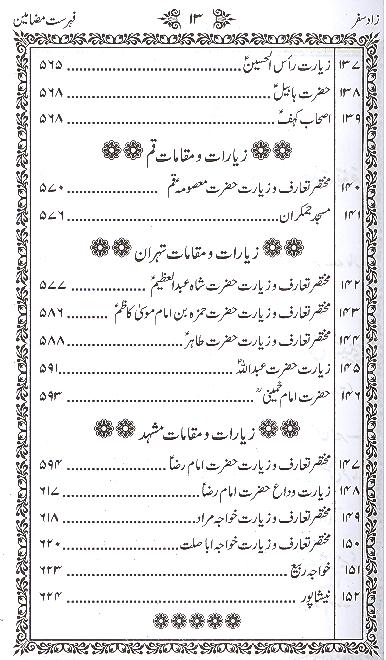 زاد سفر ۱۳ فہرست مضامین
۱۳۷ زیارت رأس الحسینؑ ۵۶۵
۱۳۸ حضرت ہابیلؑ ۵۶۸
۱۳۹ اصحاب کہفؑ ۵۶۸
زیارات و مقامات قم
۱۴۰ مختصر تعارف و زیارت حضرت معصومہؑ قم ۵۷۰
۱۴۱ مسجد جمکران ۵۷۶
زیارات و مقامات تہران
۱۴۲ مختصر تعارف و زیارت حضرت شاہ عبدالعظیمؑ ۵۷۷
۱۴۳ مختصر تعارف و زیارت حضرت حمزہ بن امام موسیٰ کاظمؑ ۵۸۶
۱۴۴ مختصر تعارف و زیارت حضرت طاہرؑ ۵۸۸
۱۴۵ زیارت حضرت عبداللہؑ ۵۹۱
۱۴۶ حضرت امام خمینیؒ ۵۹۳
زیارات و مقامات مشہد
۱۴۷ مختصر تعارف و زیارت حضرت امام رضاؑ ۵۹۴
۱۴۸ زیارت وداع حضرت امام رضاؑ ۶۱۷
۱۴۹ مختصر تعارف و زیارت خواجہ مراد ۶۱۸
۱۵۰ مختصر تعارف و زیارت خواجہ اباصلت ۶۲۰
۱۵۱ خواجہ ربیع ۶۲۳
۱۵۲ نیشاپور ۶۲۴